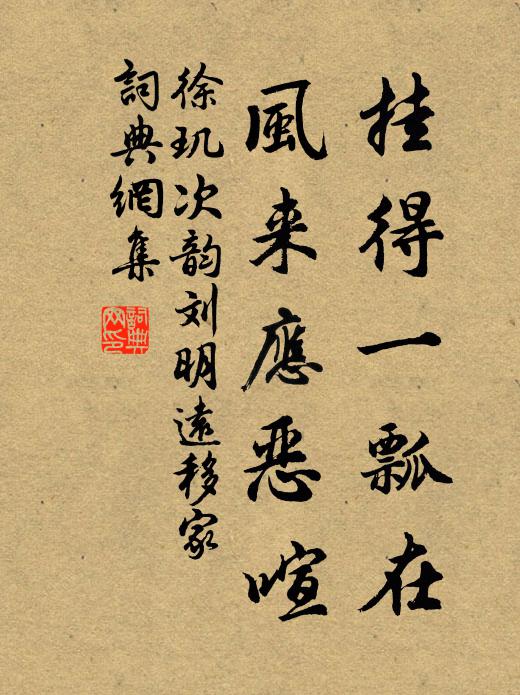 挂得一瓢在
風来應惡喧
徐玑次韵刘明遠移家
詞典網集
詞典網印